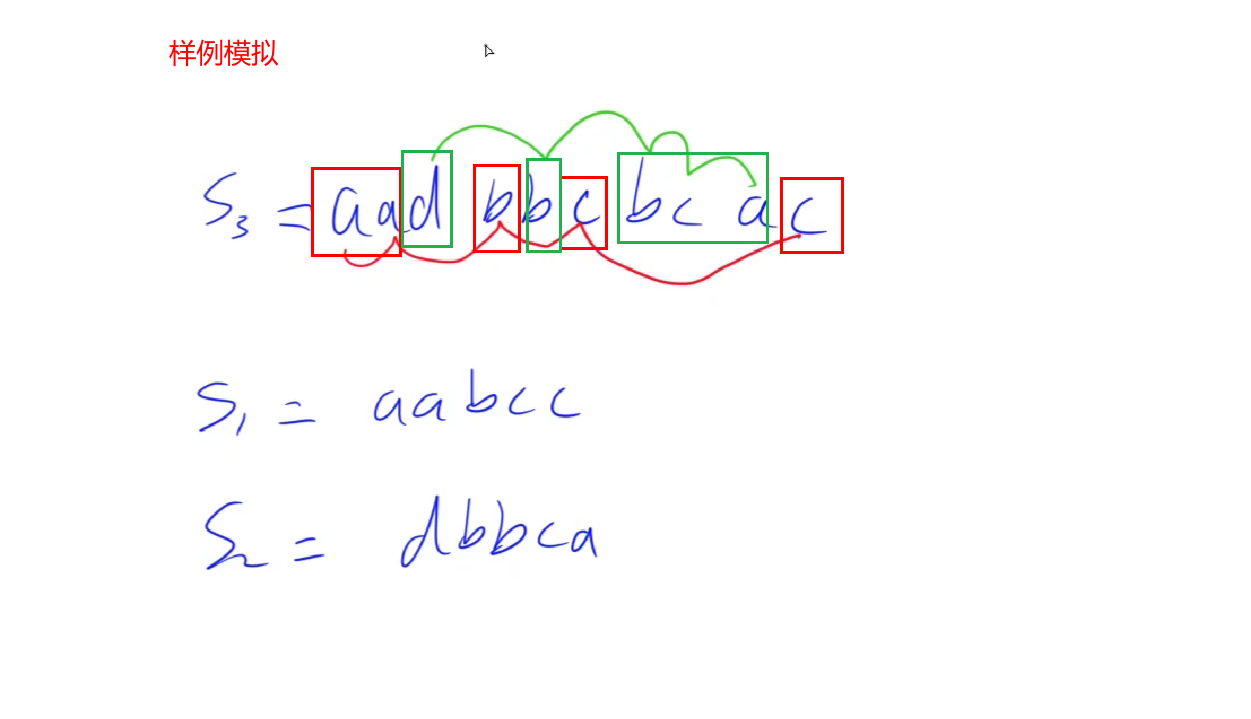 样例模拟
S3 = aadbbcbcac
S1 = aabcc
S2 = dbbca